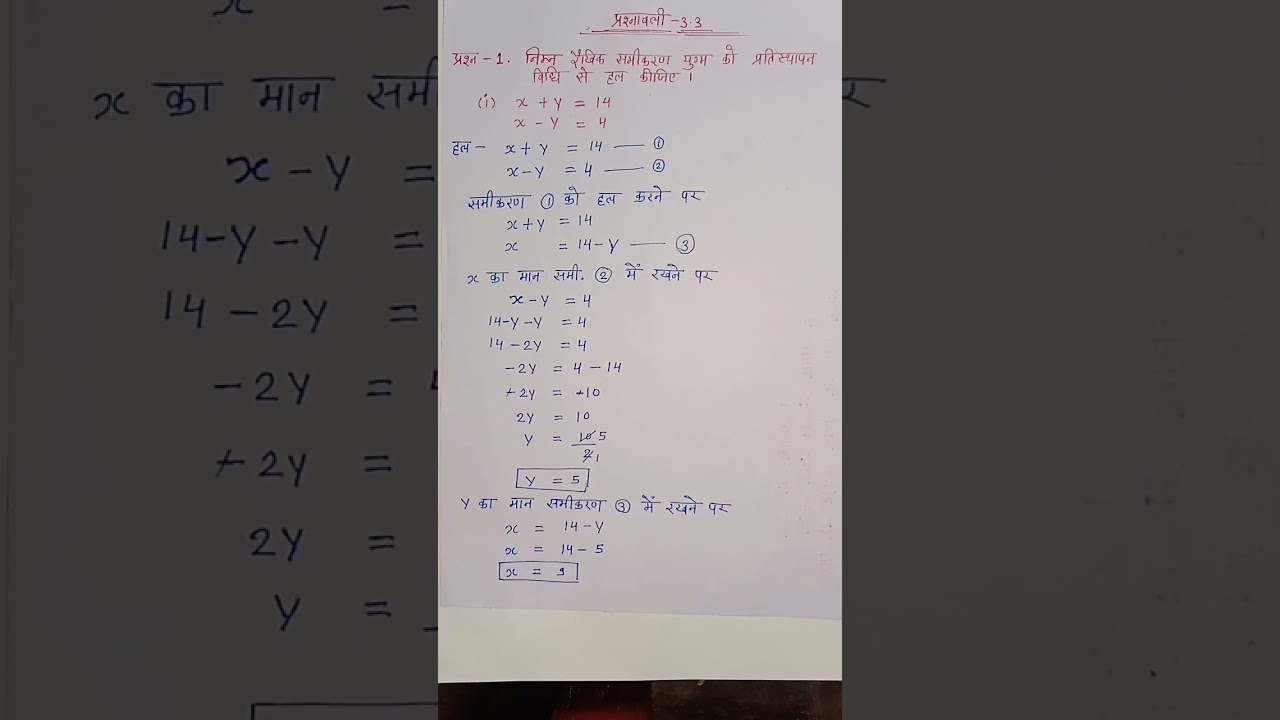 प्रश्नावली - 3.3
प्रश्न - 1. निम्न रैखिक समीकरण युग्म को प्रतिस्थापन
विधि से हल कीजिए ।
(i) x + y = 14
x - y = 4
हल - x + y = 14 — ①
x - y = 4 — ②
समीकरण ① को हल करने पर
x + y = 14
x = 14 - y — ③
x का मान समी. ② में रखने पर
x - y = 4
14 - y - y = 4
14 - 2y = 4
-2y = 4 - 14
+2y = +10
2y = 10
y = 10 5
2 1
y = 5
y का मान समीकरण ③ में रखने पर
x = 14 - y
x = 14 - 5
x = 9